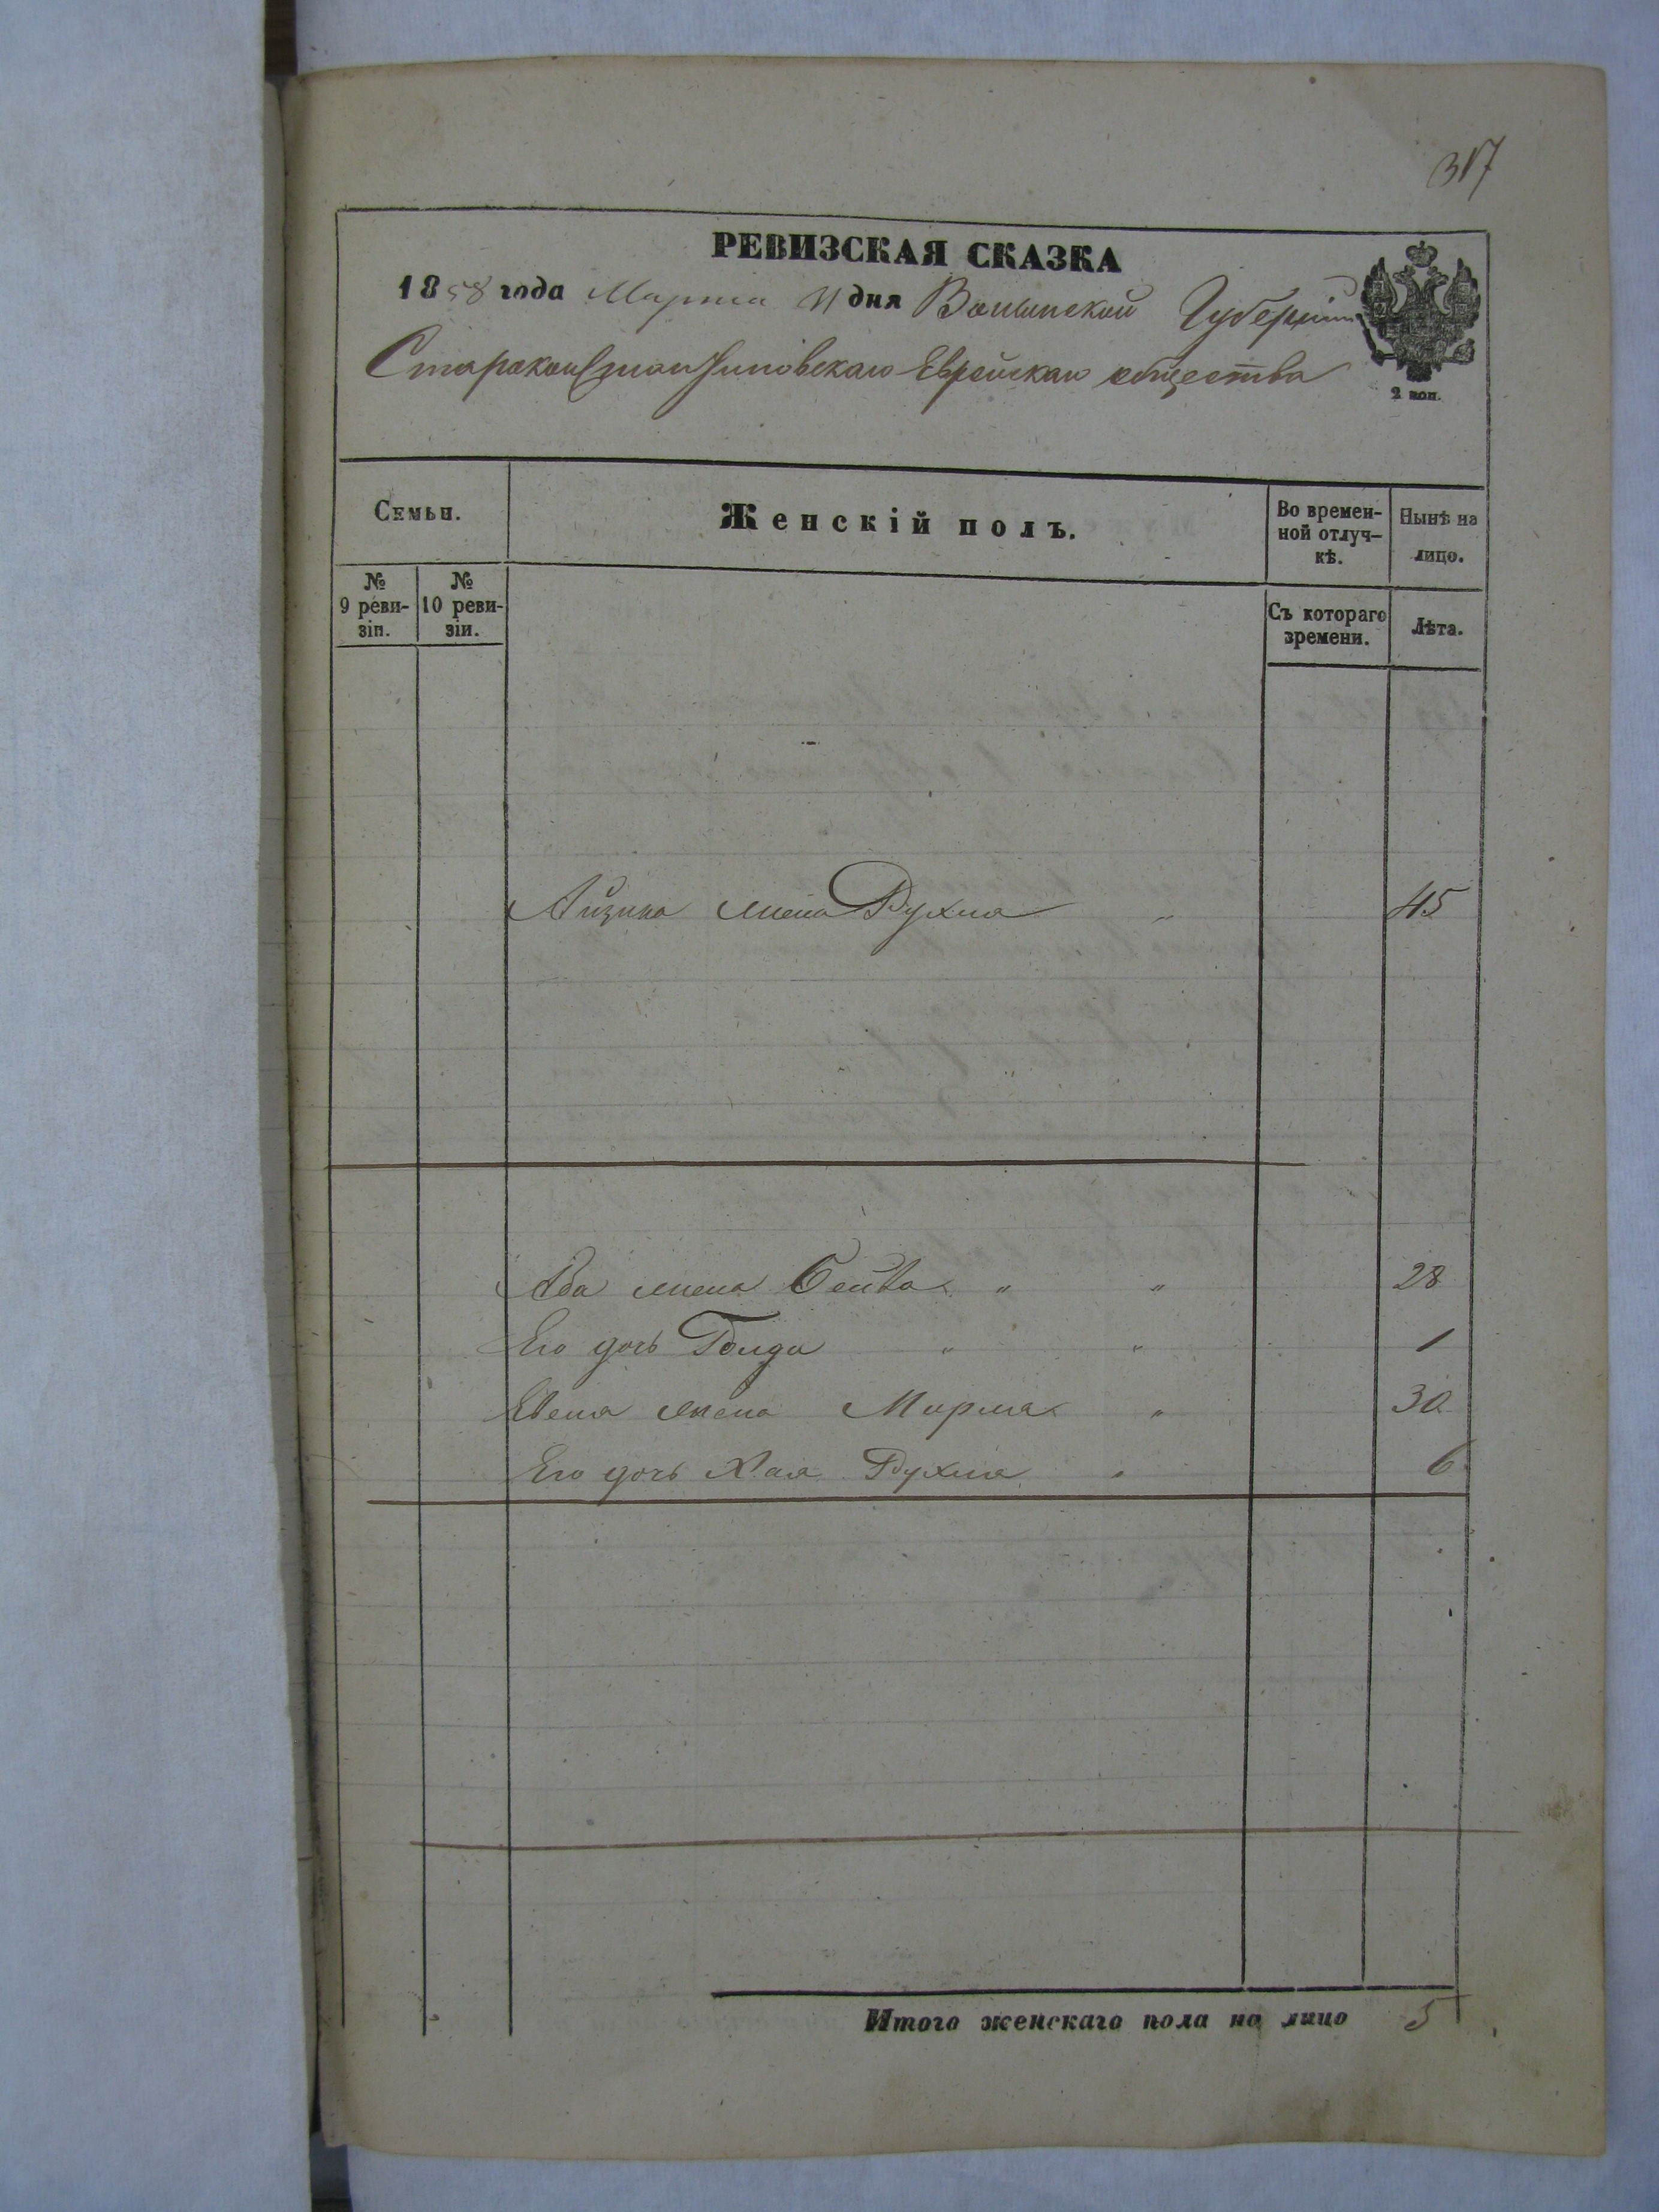 317
РЕВИЗСКАЯ СКАЗКА
1858 года Марта 11 дня Волынской Губерніи
Староконстантиновскаго Еврейскаго общества
2 коп.
Семьи.
Женскій полъ.
Во времен-
ной отлуч-
кѣ.
Нынѣ на
лицо.
№
9 реви-
зіи.
№
10 реви-
зіи.
Съ котораго
времени.
Лѣта.
Айзика жена Рухля " 45
Аба жена Бейла " " 28
Его дочь Голда " " 1
жена Мирля " 30
Его дочь Хая Рухля " 6
Итого женскаго пола на лицо 5